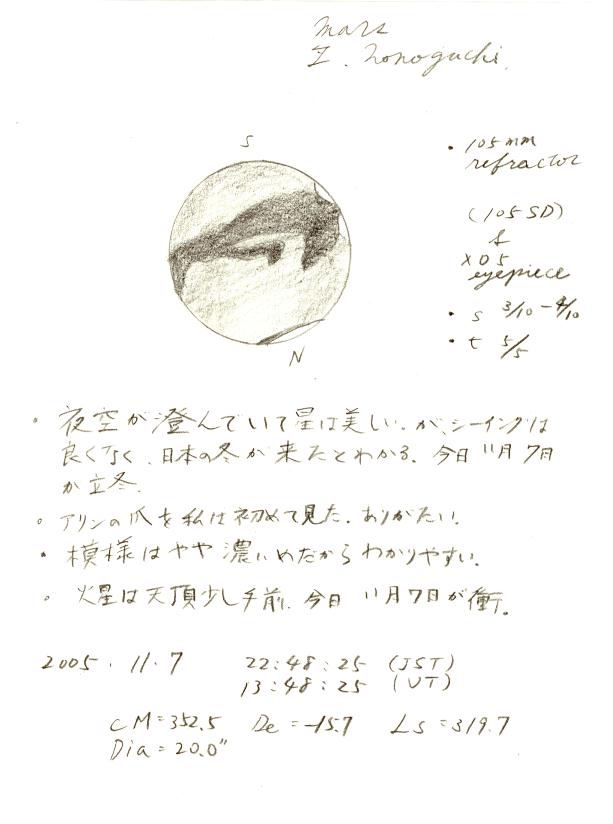 Mars
I. Nonoguchi.
S
• 105mm
refractor
(105SD)
&
XO5
eyepiece
• S 3/10 - 4/10
• t 5/5
N
。夜空が澄んでいて星は美しい、が、シーイングは
良くなく、日本の冬が来たとわかる。今日11月7日
が立冬。
。アリンの爪を私は初めて見た。ありがたい。
• 模様はやや濃いめだからわかりやすい。
。火星は天頂少し手前。今日11月7日が衝。
2005.11.7 22:48:25 (JST)
13:48:25 (UT)
CM=352.5 De=-15.7 Ls=319.7
Dia=20.0"